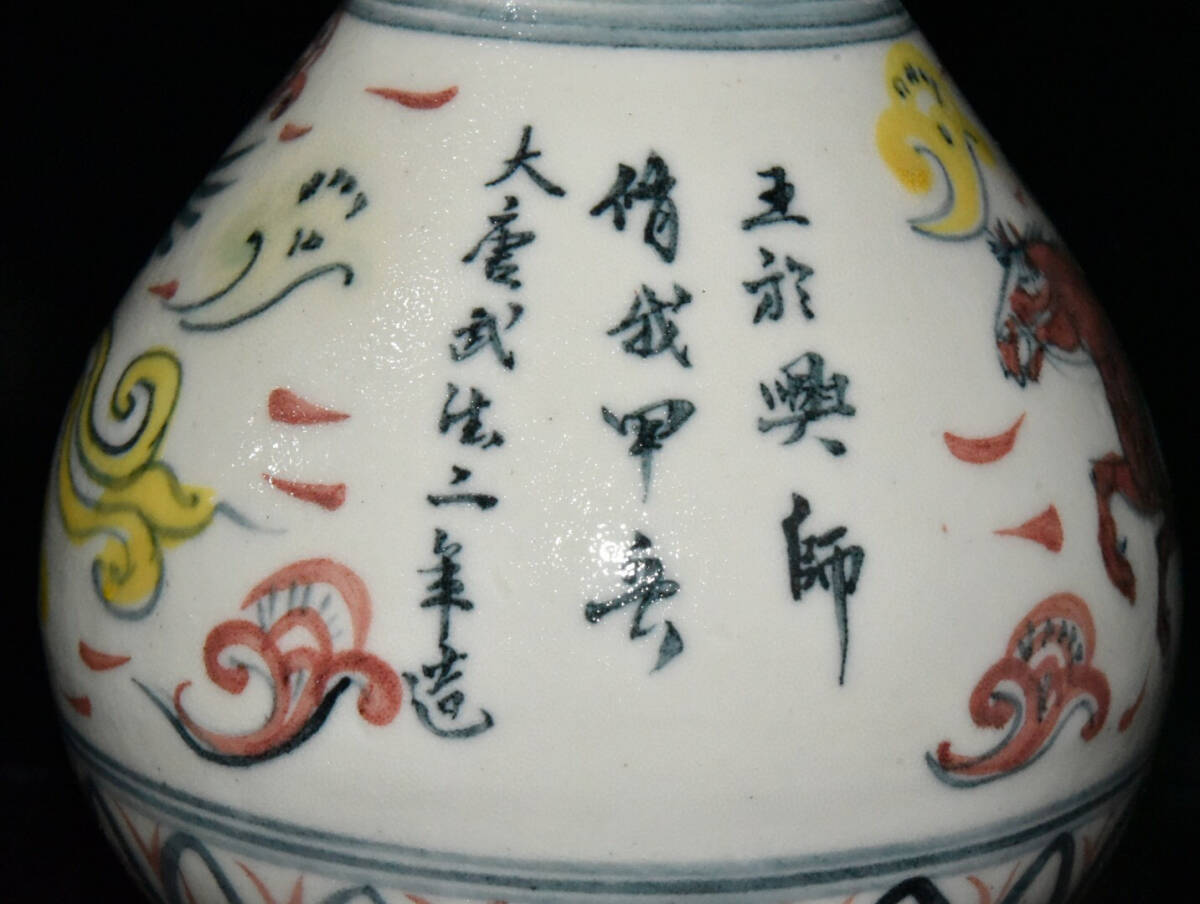 王於興師
脩我甲兵
大唐武德二年造